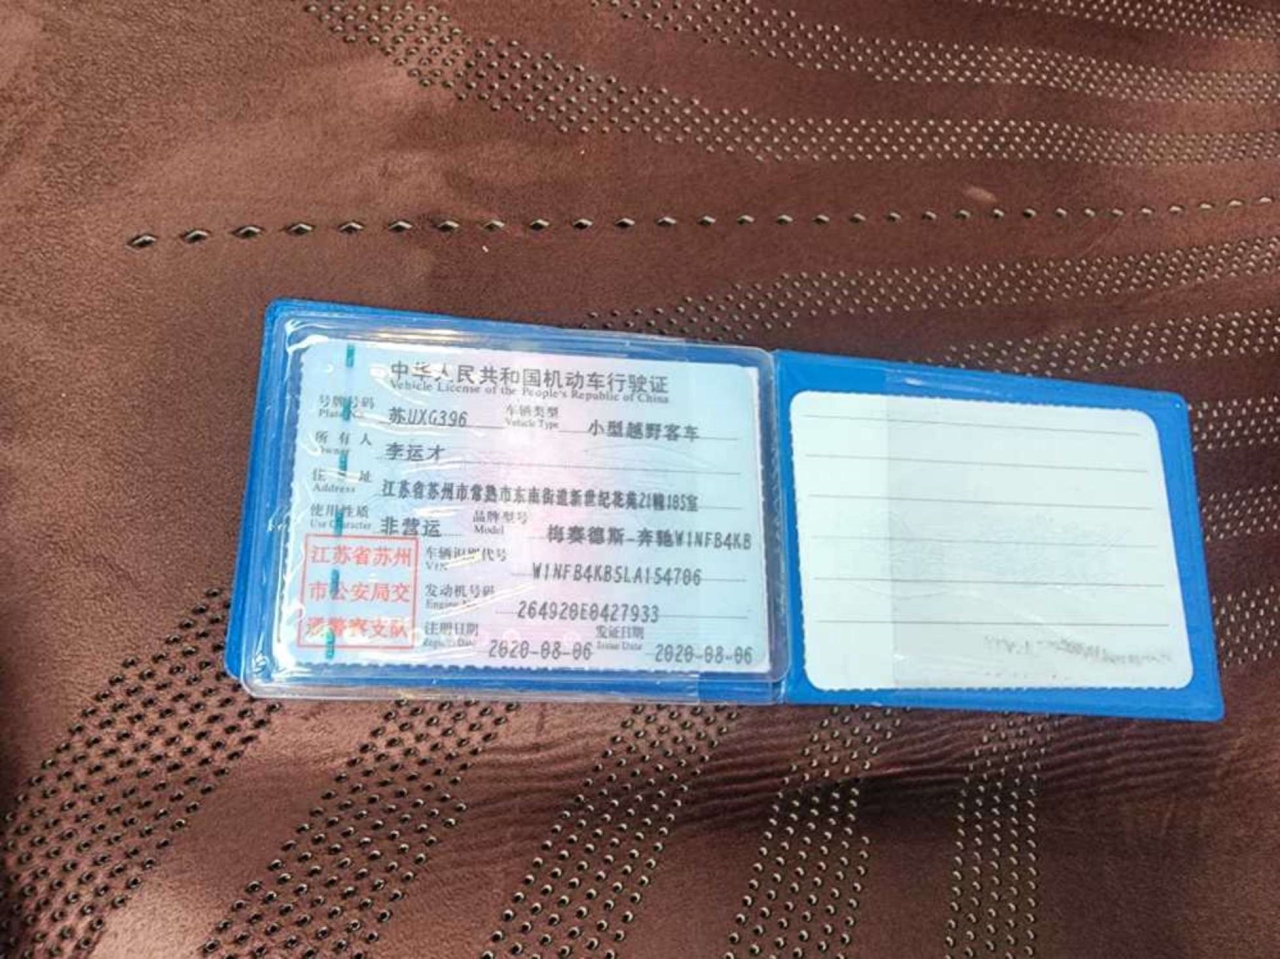 中华人民共和国机动车行驶证
Vehicle License of the People's Republic of China
号牌号码 苏UXG396 车辆类型 小型越野客车
Plate No. Vehicle Type
所有人 李运才
Owner
住址 江苏省苏州市常熟市东南街道新世纪花苑21幢105室
Address
使用性质 非营运 品牌型号 梅赛德斯-奔驰W1NFB4KB
Use Character Model
车辆识别代号 W1NFB4KB5LA154706
VIN
发动机号码 264920E0427933
Engine No.
注册日期 2020-08-06 发证日期 2020-08-06
Register Date Issue Date
江苏省苏州
市公安局交
通警察支队